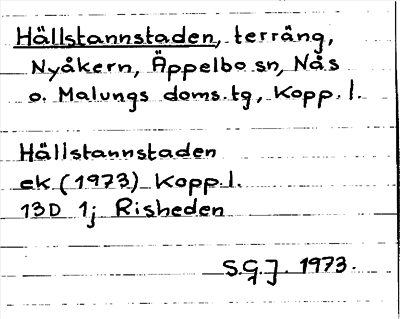 Hällstannstaden, terräng,
Nyåkern, Äppelbo sn, Nås
o. Malungs doms.tg, Kopp. l.
Hällstannstaden
ek (1973) Kopp.l.
13D 1j Risheden
S.G.J. 1973.